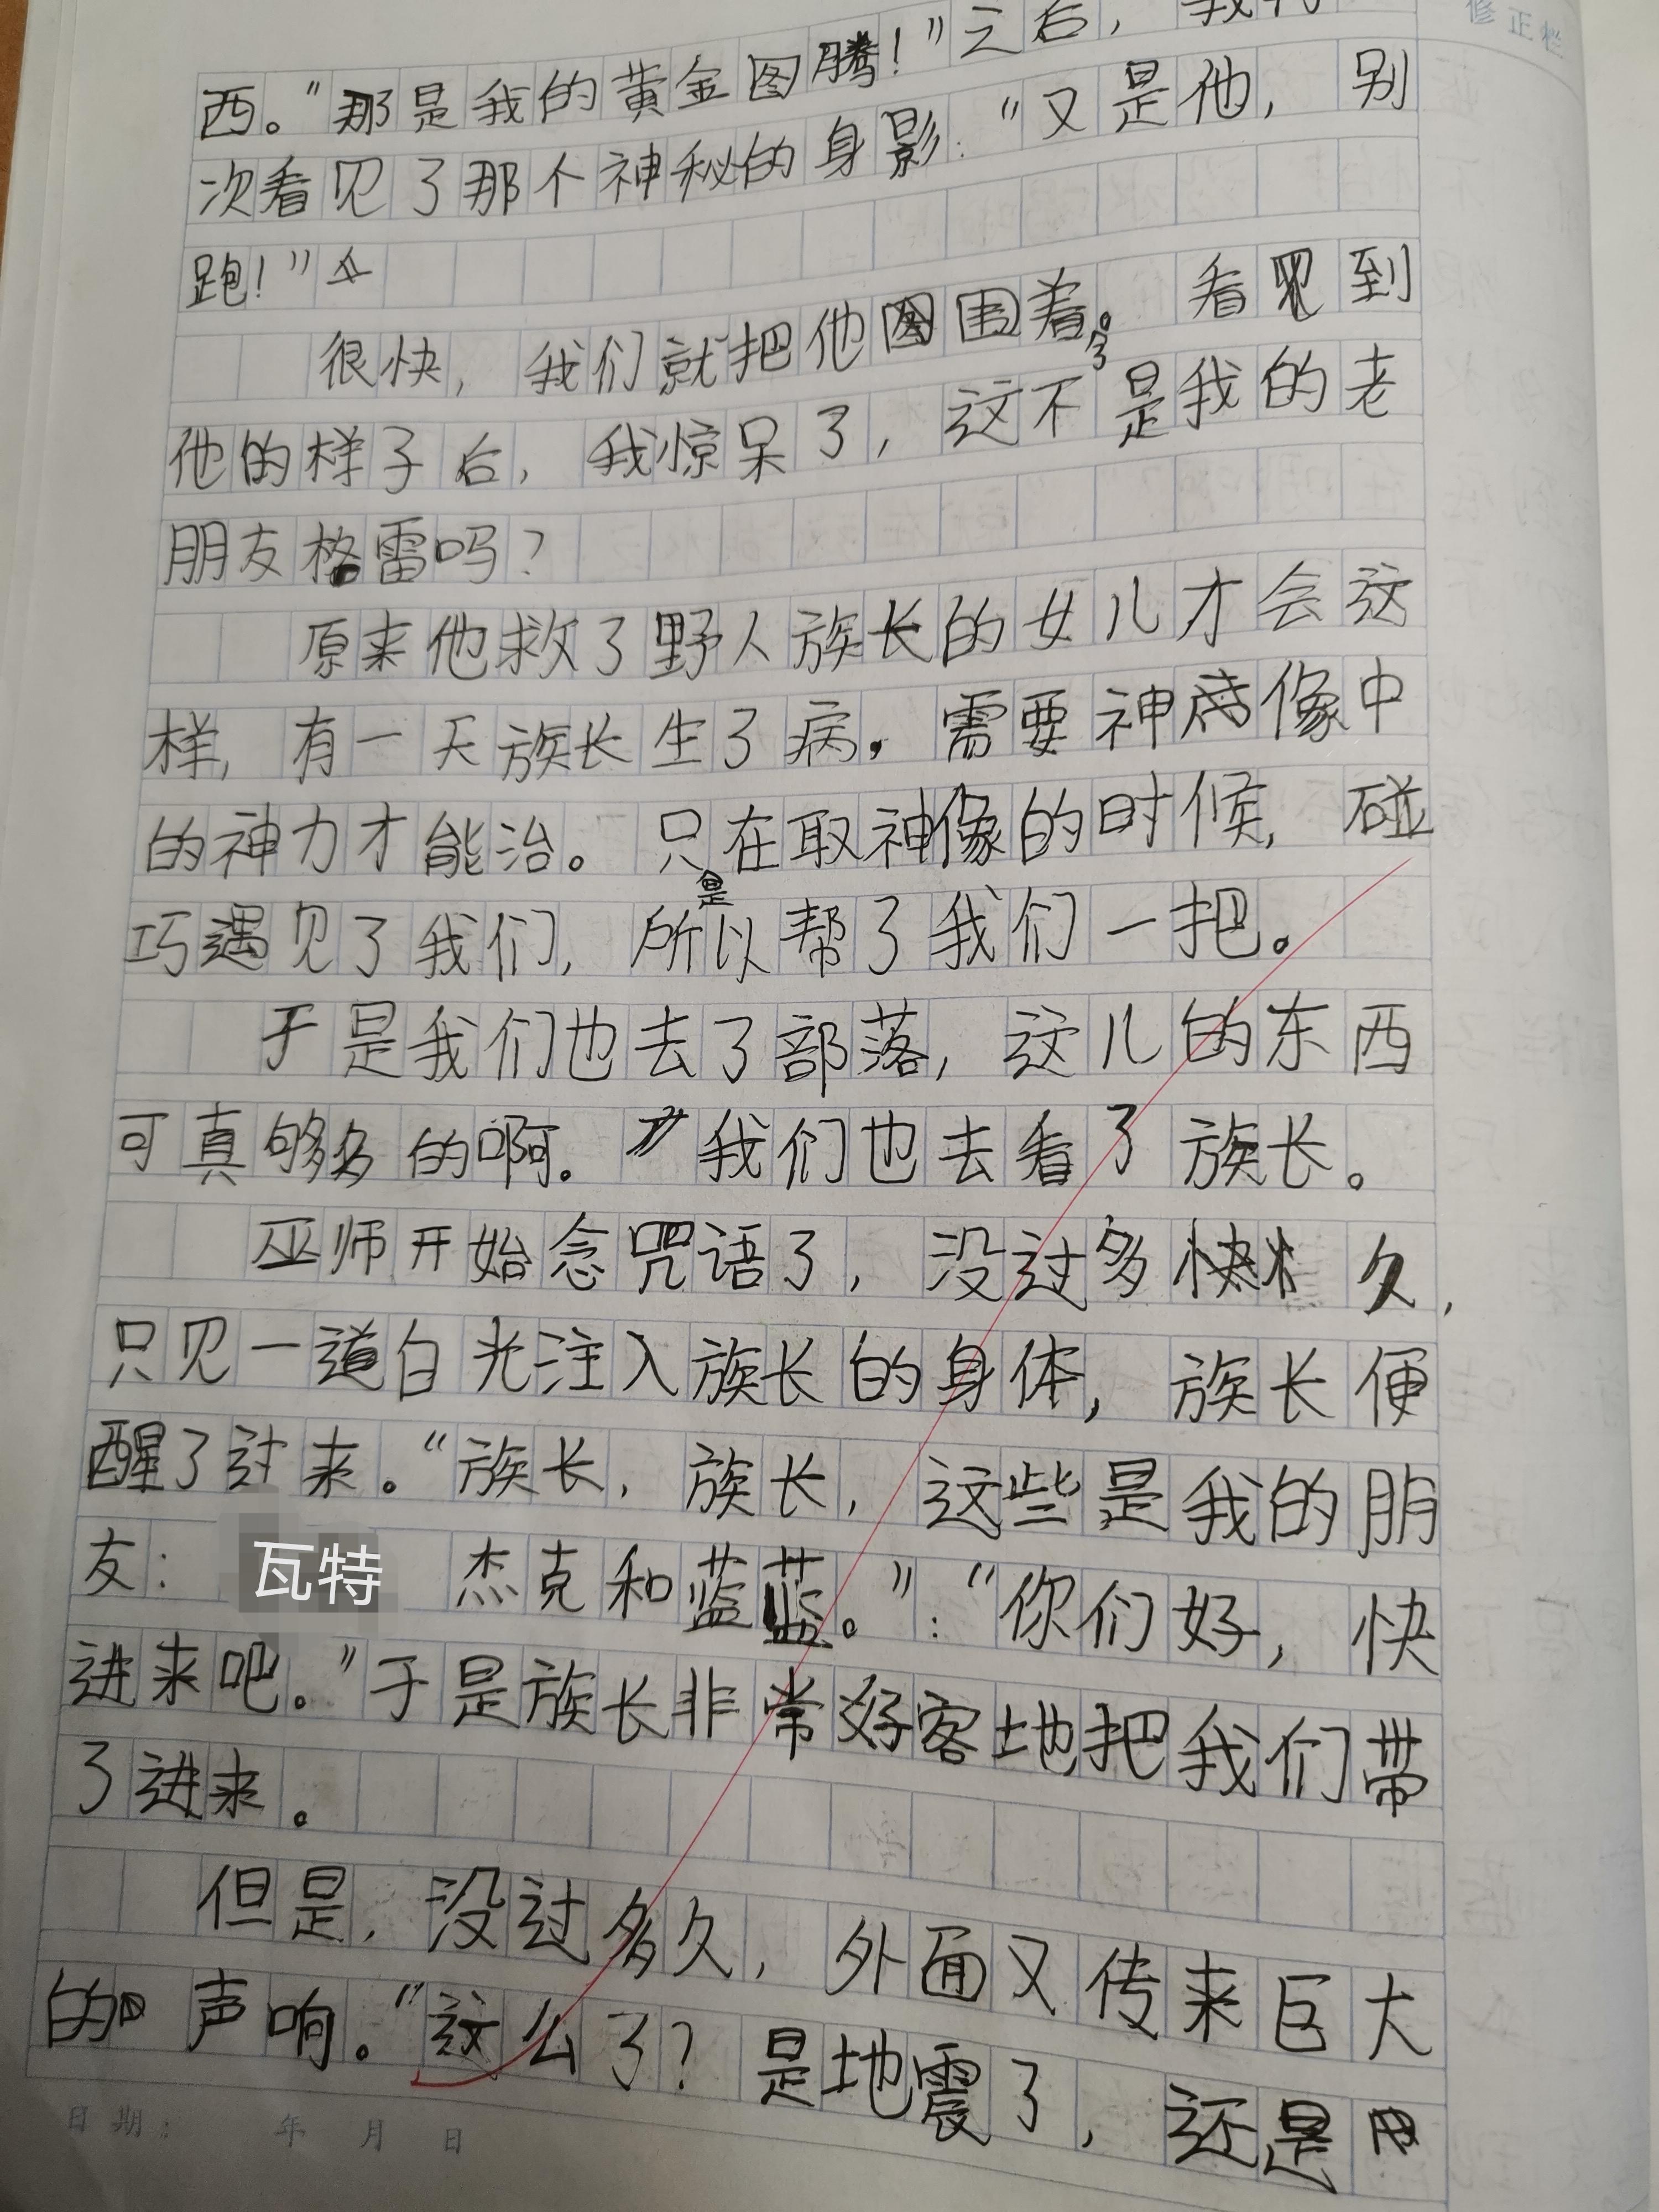 修正栏
西。"那是我的黄金图腾！"之后，我们
次看见了那个神秘的身影："又是他，别
跑！"
很快，我们就把他围着了。看到
他的样子后，我惊呆了，这不是我的老
朋友格雷吗？
原来他救了野人族长的女儿才会这
样，有一天族长生了病，需要神像中
的神力才能治。只是在取神像的时候，碰
巧遇见了我们，所以帮了我们一把。
于是我们也去了部落，这儿的东西
可真够多的啊。我们也去看了族长。
巫师开始念咒语了，没过多久，
只见一道白光注入族长的身体，族长便
醒了过来。"族长，族长，这些是我的朋
友：瓦特 杰克和蓝蓝。"："你们好，快
进来吧。"于是族长非常好客地把我们带
了进来。
但是，没过多久，外面又传来巨大
的声响。"这么了？是地震了，还是
日期： 年 月 日